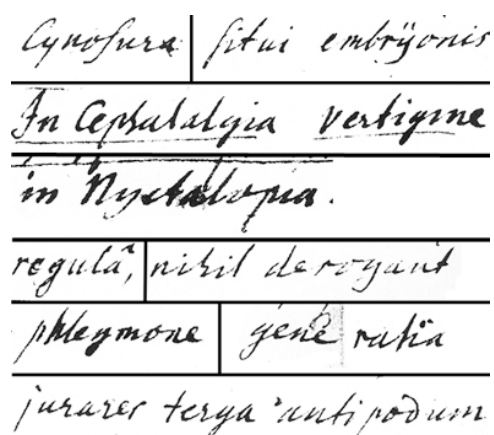 Cynoſura ſitui embrÿonis
In Cephalalgia vertigine
in Nyctalopia.
regulâ, nihil derogant
phlegmone generatia
jurares terga antipodum